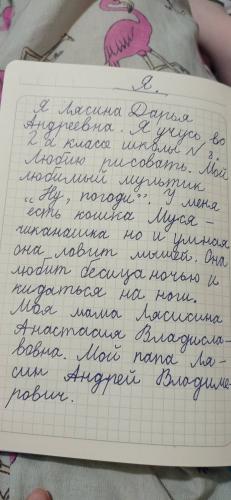 Я.
Я Лясина Дарья
Андреевна. Я учусь во
2 а классе школы № 2.
Люблю рисовать. Мой
любимый мультик
„Ну, погоди". У меня
есть кошка Муся –
шкапашка но и умная
она ловит мышей. Она
любит бесица ночью и
кидаться на ноги.
Моя мама Лясисина
Анастасия Владисла-
вовна. Мой папа Ля-
син Андрей Владиме-
рович.